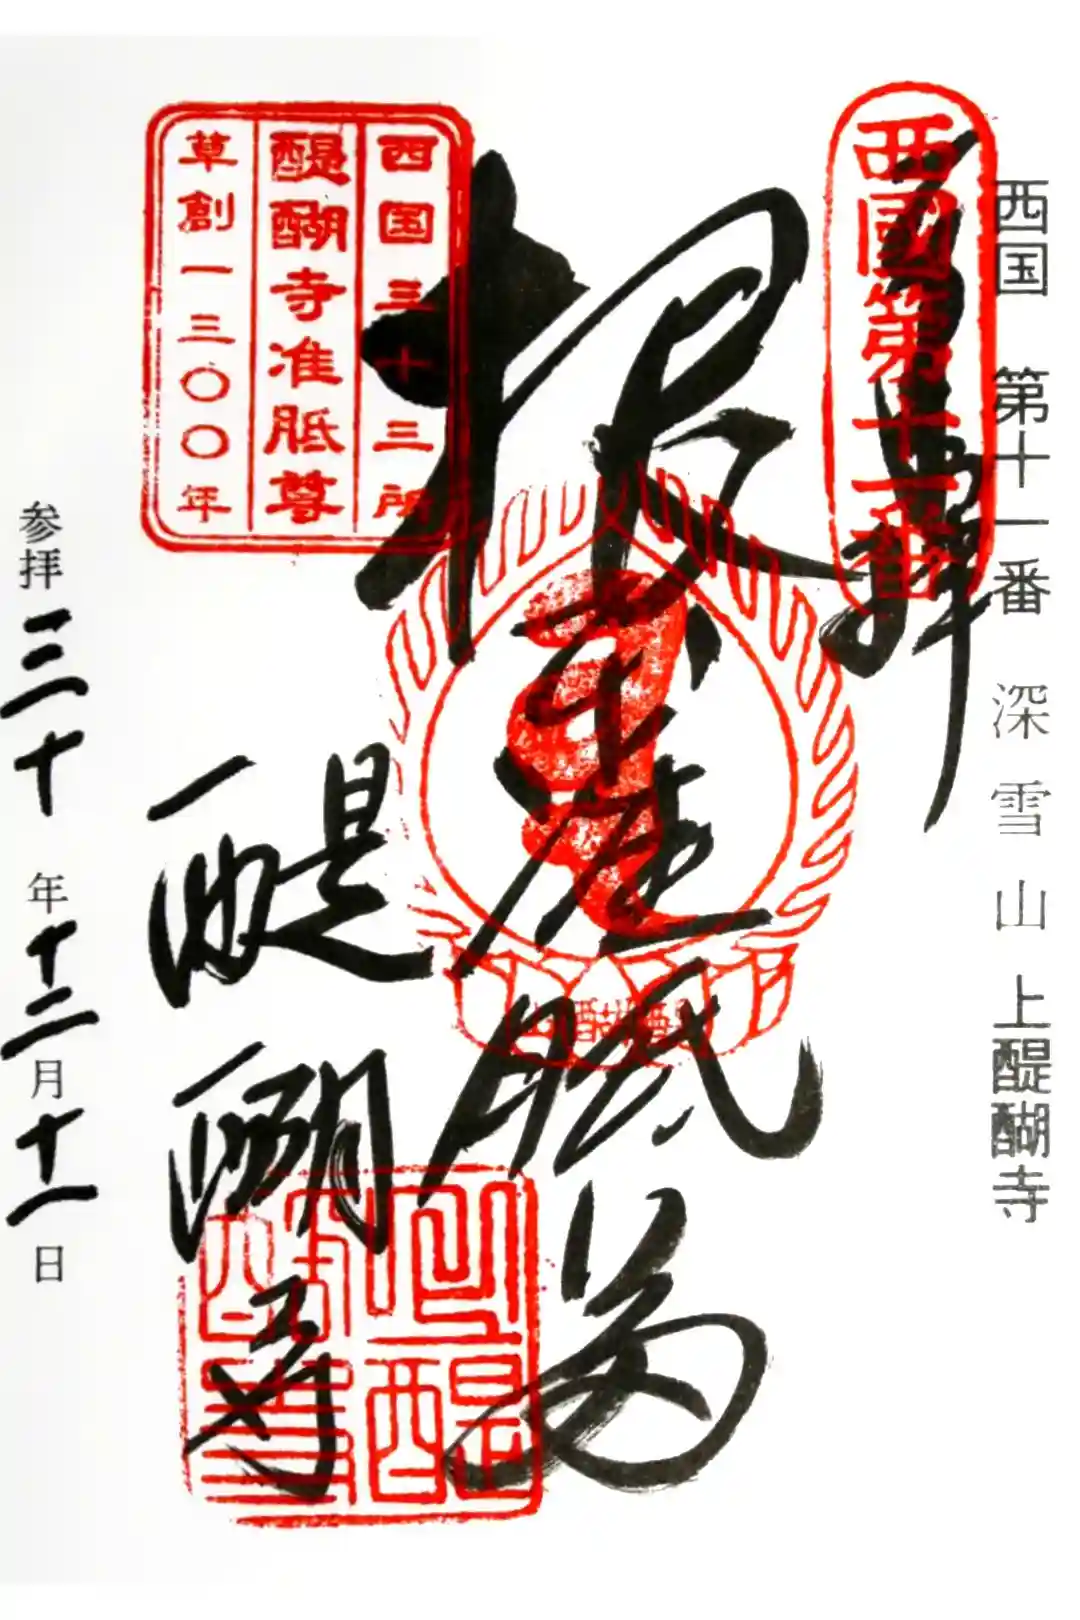 西国 第十一番 深雪山 上醍醐寺
西國第十一番
奉拝
根本准胝尊
西国三十三所
醍醐寺准胝尊
草創一三〇〇年
醍醐寺
参拝 三十年十二月十一日